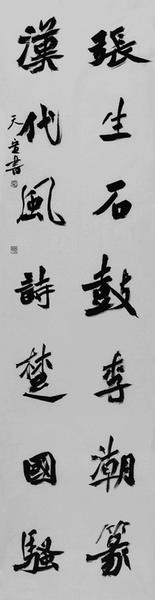 張生石鼓李潮篆
漢代風詩楚國騷
天生書